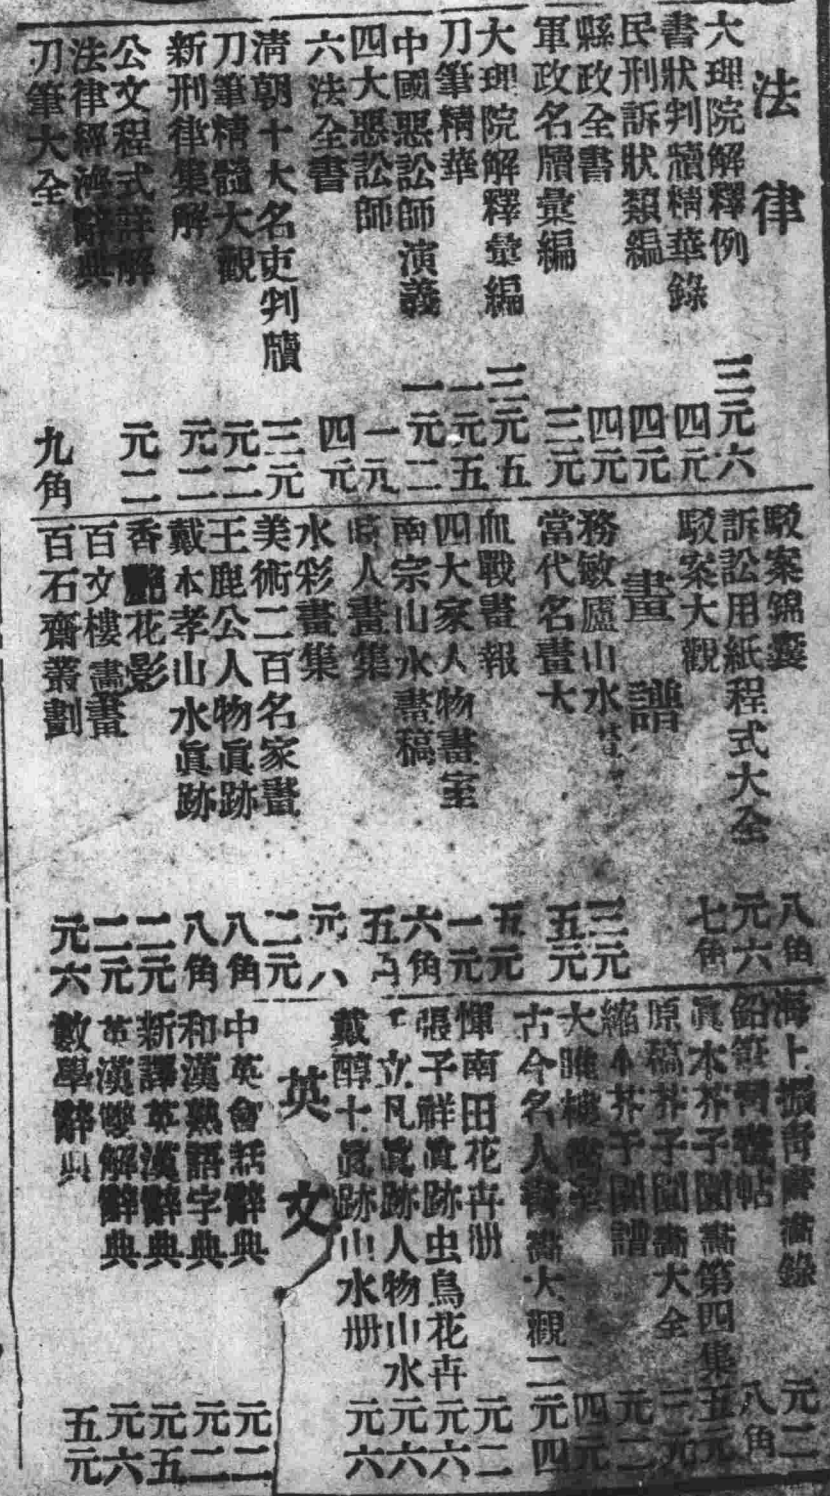 法律
大理院解釋例 三元六
書狀判牘精華錄 四元
民刑訴狀類編 四元
縣政全書 四元
軍政名牘彙編 三元
大理院解釋彙編 三元五
刀筆精華 一元五
中國惡訟師演義 一元二
四大惡訟師 一元
六法全書 四元
清朝十大名吏判牘 三元
刀筆精髓大觀 元二
新刑律集解 元二
公文程式詳解 元二
法律經濟辭典
刀筆大全 九角
駁案錦囊 八角
訴訟用紙程式大全 元六
駁案大觀 七角
畫譜
務敏廬山水 三元
當代名畫大 五元
血戰畫報 五元
四大家人物畫室 一元
南宗山水畫稿 六角
人畫集 五
水彩畫集 元八
美術二百名家畫 二元
王鹿公人物眞跡 八角
戴本孝山水眞跡 八角
香艷花影 二元
百文樓畫 二元
百石齋叢劃 元六
海上 錄 元二
鉛筆 帖 八角
眞本芥子園畫第四集 五元
原稿芥子園畫大全 三元
縮本芥子園譜 元二
大 四元
古今名人書畫大觀二 元四
惲南田花卉册 元二
張子祥眞跡虫鳥花卉 元六
立凡眞跡人物山水 元六
戴醇士眞跡山水册 元六
英文
中英會話辭典 元二
和漢熟語字典 元二
新譯英漢辭典 元五
英漢雙解辭典 元六
數學辭典 五元